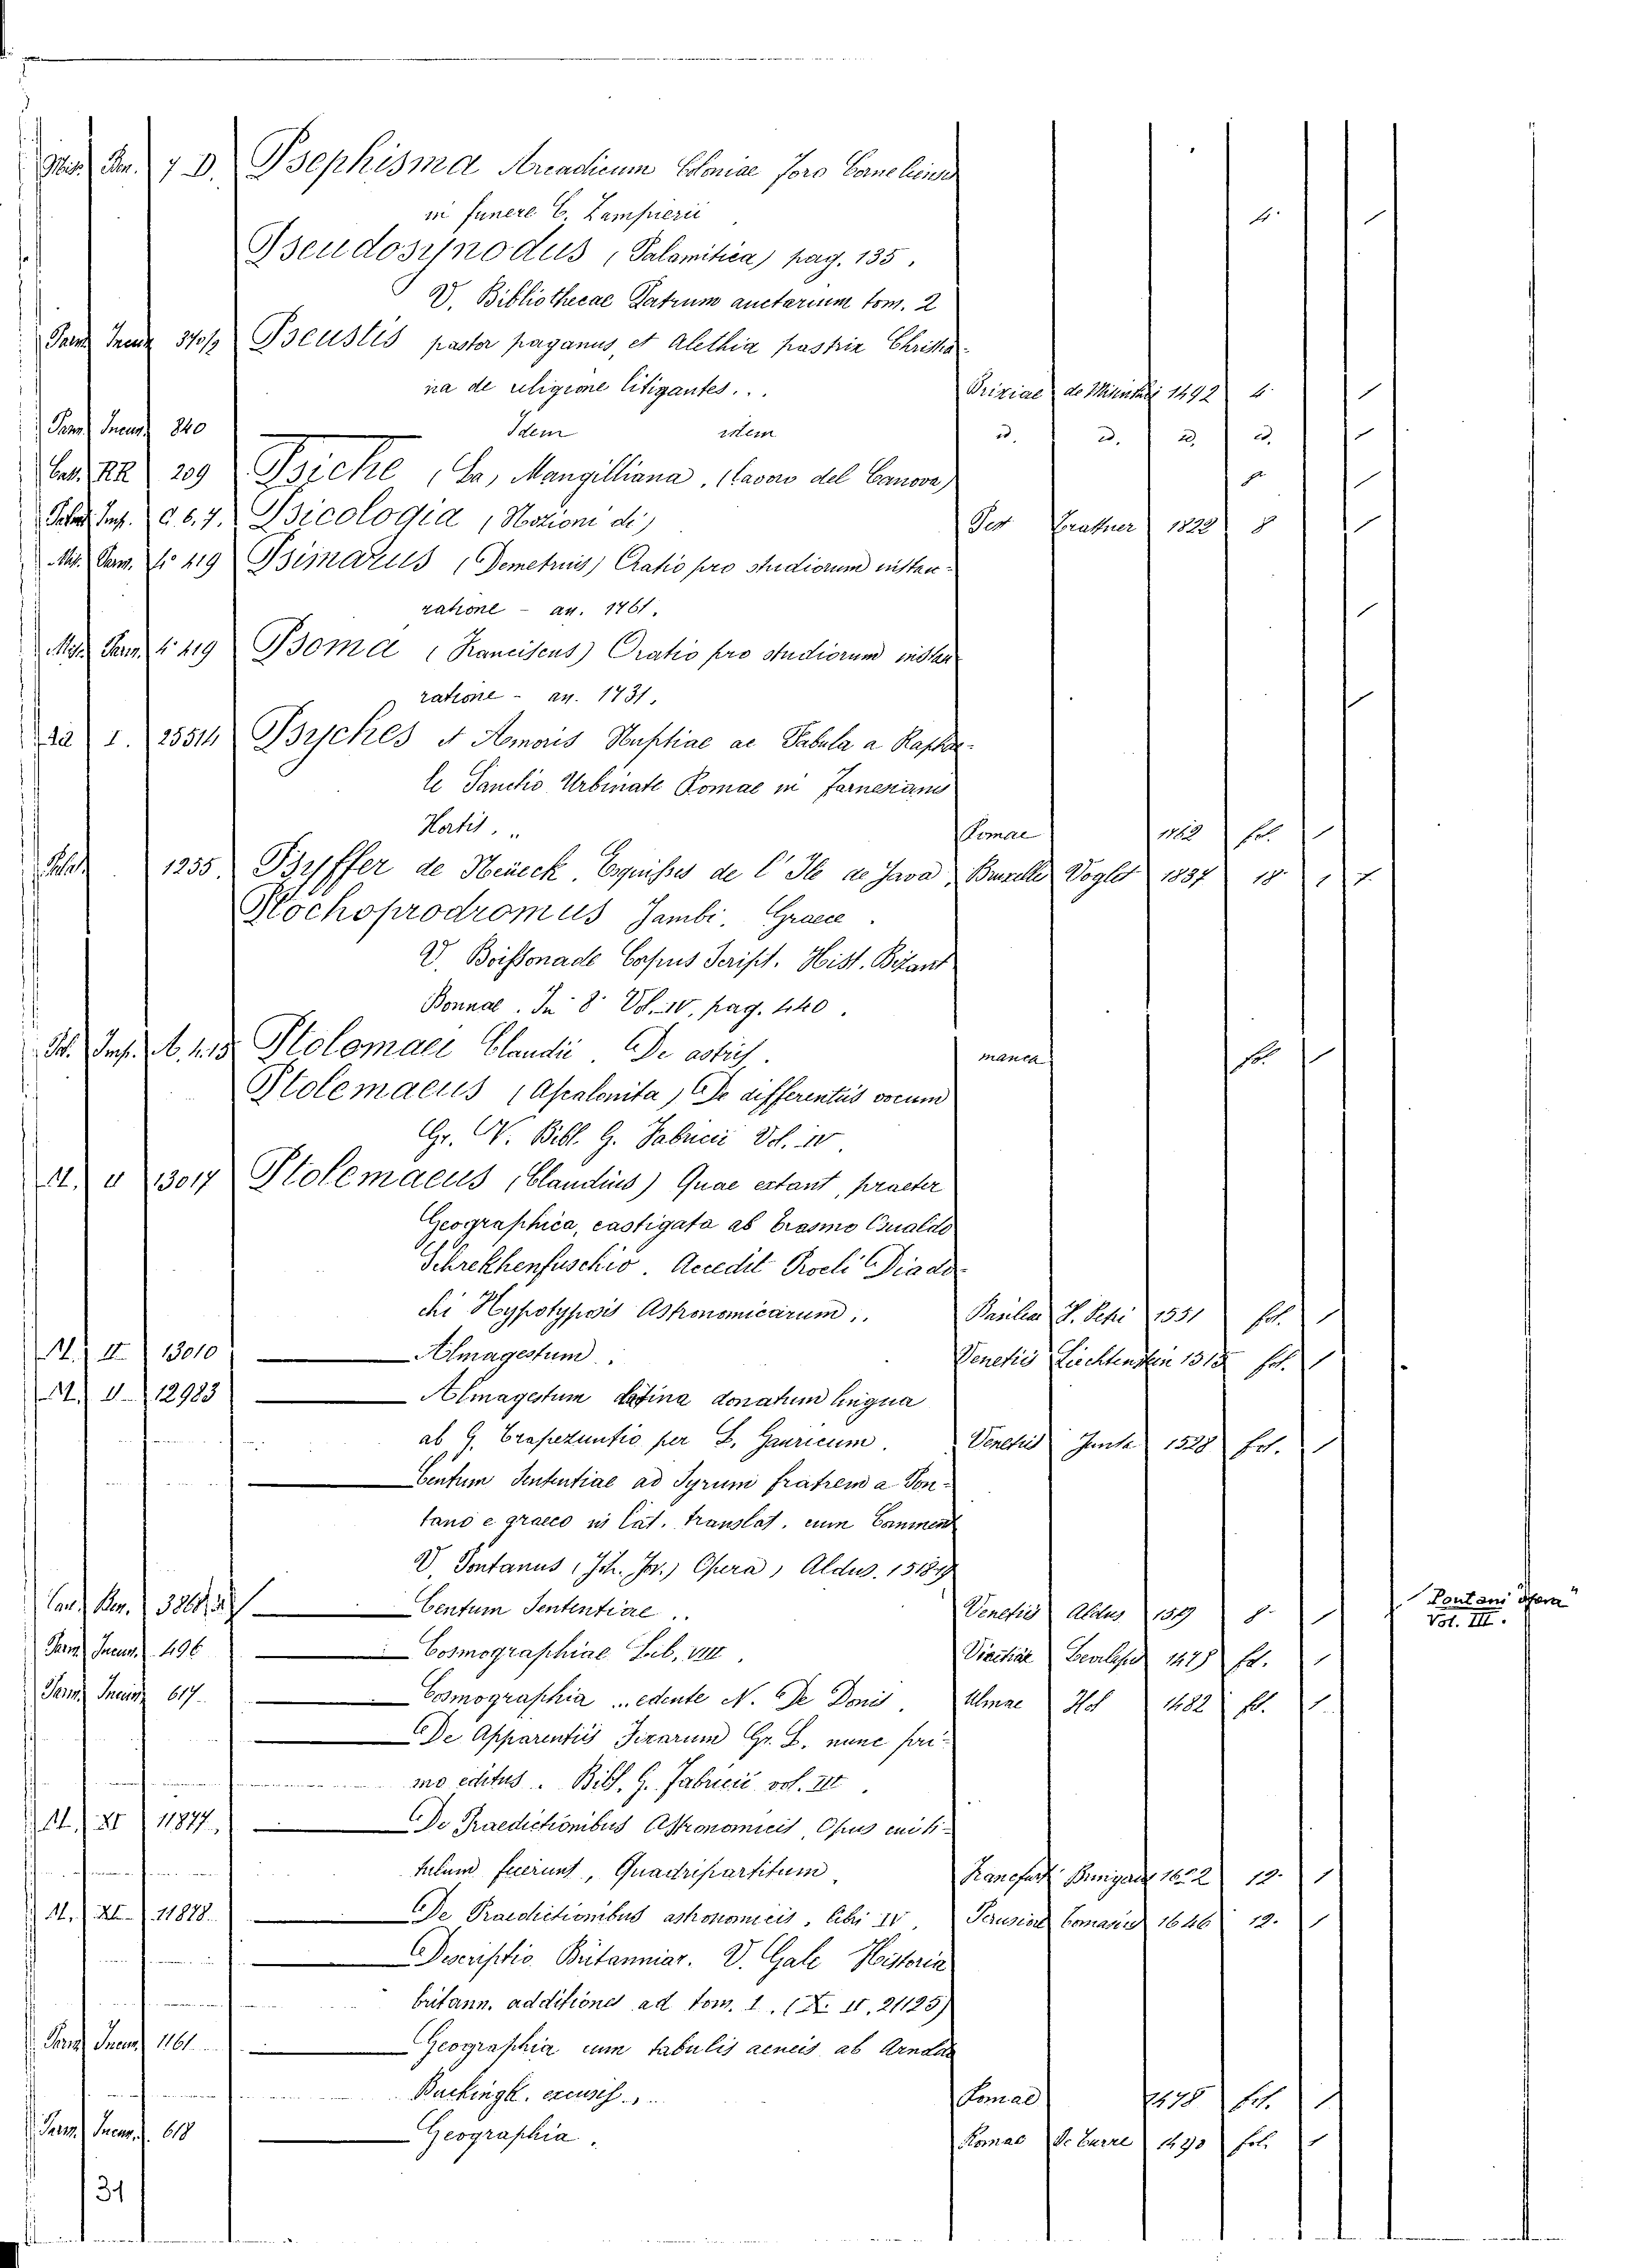 Misc. Par. 7 D. Psephisma Arcadicum Coloniae Foro Corneliensis
in funere C. Zampierii 4. 1
Pseudosynodus (Palamitica) pag. 135.
V. Bibliothecae Patrum auctarium tom. 2
Parm Incun 370/2 Pseustis pastor paganus, et Alethia pastrix Christia-
na de religione litigantes... Brixiae de Misintis 1492 4 1
Parm Incun 840 Idem istem id. id. id. id. 1
Cat. RR 209 Psiche (La) Mangilliana, (lavoro del Canova) 1
Palat Imp. C. 6. 7. Psicologia (Nozioni di) Pest Trattner 1822 8 1
Misc. Parm. fo 419 Psimarus (Demetrius) Oratio pro studiorum instau-
ratione - an. 1761. 1
Misc. Parm. fo 419 Psoma (Franciscus) Oratio pro studiorum instau
ratione - an. 1731. 1
dd I. 25514 Psyches et Amoris Nuptiae ac Fabula a Raphae-
le Sanctio Urbinate Romae in Farnesianis
Hortis... Romae 1762 fol. 1
Palat 1235. Psyffer de Neüeck. Esquisses de l'Ile de Java, Bruxelles Voglet 1837 18 1
Ptochoprodromus Jambi. Graece.
V. Boissonade Corpus Script. Hist. Bizant
Bonnae. In 8° Vol. IV. pag. 440.
Pal. Imp. A. 1.15 Ptolomaei Claudii. De astris. manca fol. 1
Ptolemaeus (Ascalonita) De differentiis vocum
Gr. V. Bibl. G. Fabricii Vol. IV.
M. II 13017 Ptolemaeus (Claudius) Quae extant, praeter
Geographica, castigata ab Erasmo Osualdo
Schrekhenfuschio. Accedit Procli Diado-
chi Hypotyposis Astronomicarum.. Basilea H. Petri 1551 fol. 1
M. II 13010 Almagestum. Venetiis Liechtenstein 1515 fol. 1
M. II 12983 Almagestum latina donatum lingua
ab G. Trapezuntio per L. Gauricum. Venetiis Junta 1528 fol. 1
Centum Sententiae ad Syrum fratrem a Pon-
tano e graeco in lat. translat. cum Comment
V. Pontanus (Joh. Jov.) Opera, Aldus. 1518-19
Centum Sententiae.. Venetiis Aldus 1519 8 1
Pontani Opera"
Vol. III.
Parm Incun. 496 Cosmographiae Lib. VIII. Vicentiae 1475 fol. 1
Parm Incun 617 Cosmographia ... edente N. De Donis. Ulmae Hol 1482 fol. 1
De Apparentiis Fixarum Gr. L. nunc pri-
mo editus. Bibl. G. Fabricii vol. III.
M. XI 11877. De Praedictionibus Astronomicis, Opus cui ti-
tulum fecerunt, Quadripartitum. Francfurt Bringerus 1622 12. 1
M. XI 11878. De Praedictionibus astronomicis, libri IV. Perusiae 1646 12. 1
Descriptio Britanniar. V. Gale Historia
britann. additiones ad tom. 1. (X. II. 21125)
Parm Incun 1161 Geographia cum tabulis aeneis ab Arnoldo
Buckingk. excusis... Romae 1478 fol. 1
Parm Incun. 618 Geographia. Romae De Turre 1490 fol. 1
31